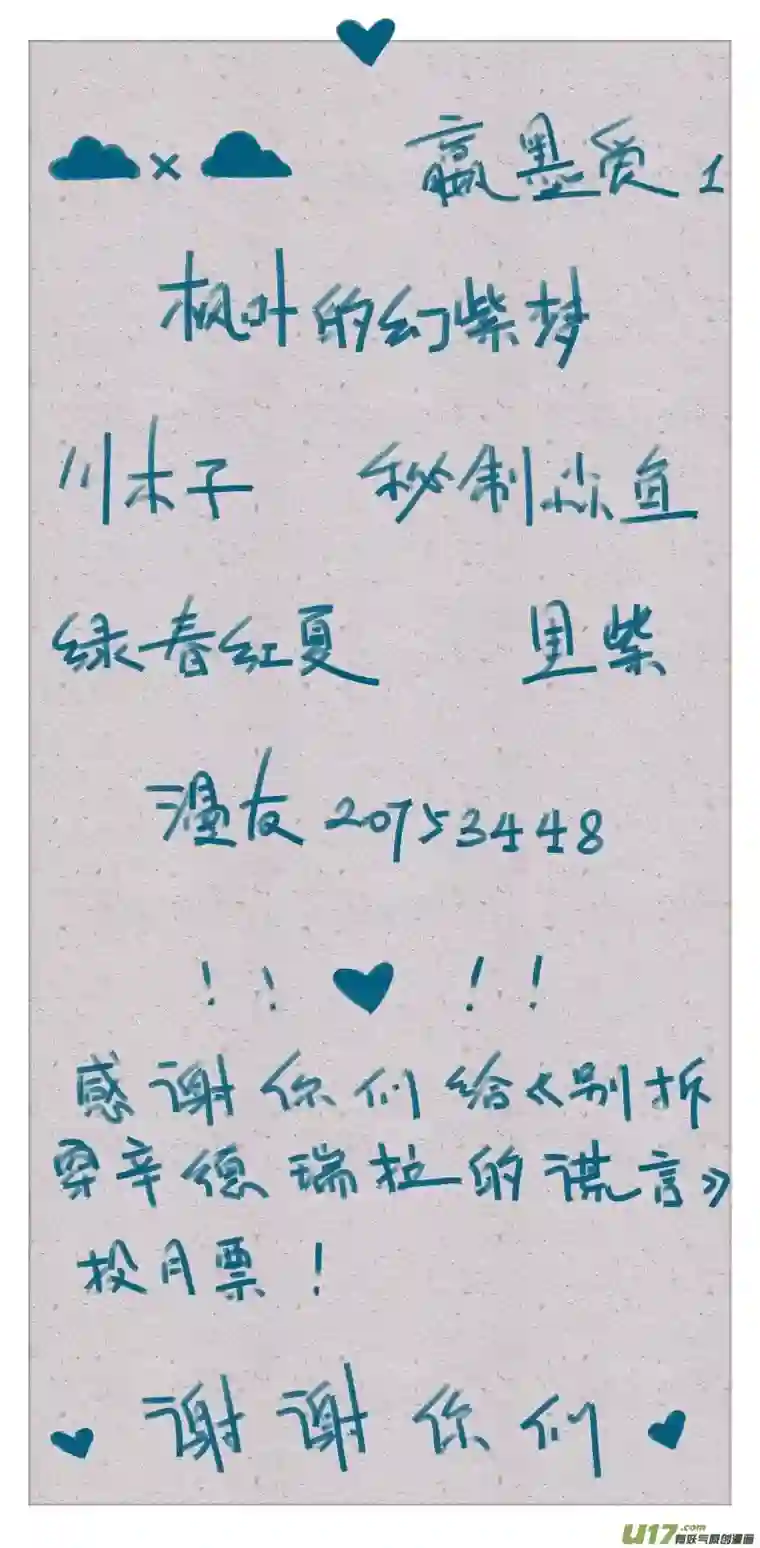 ☁×☁ 赢墨爱1
枫叶的幻紫梦
川木子 秘制焱鱼
绿春红夏 里紫
漫友20753448
!!♥!!
感谢你们给《别拆
穿辛德瑞拉的谎言》
投月票!
谢谢你们
U17.com
有妖气原创漫画